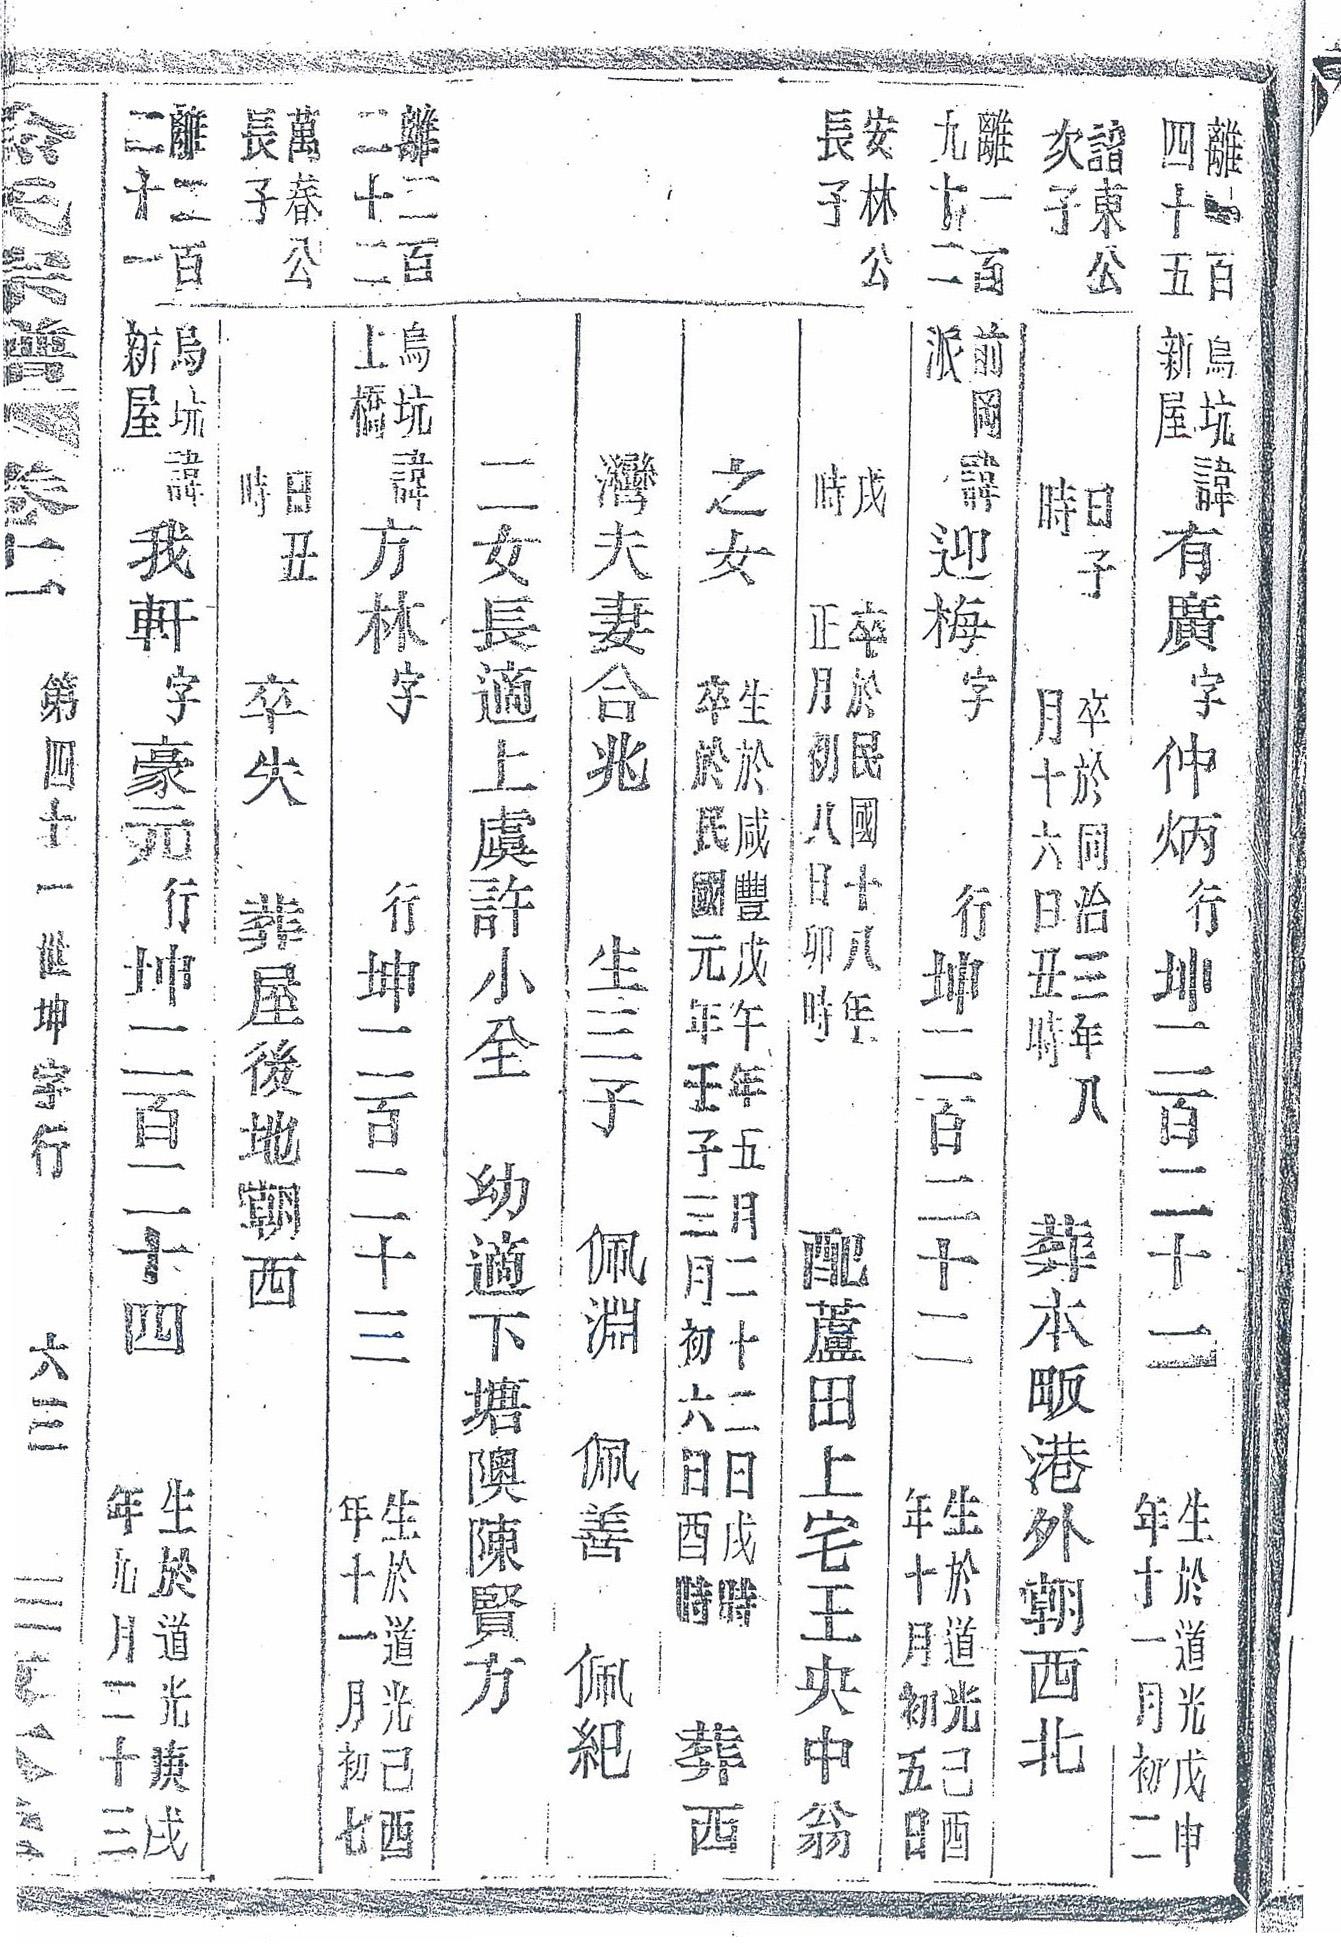 離一百
四十五
諳東公
次子
離一百
九十二
安林公
長子
離二百
二十二
萬春公
長子
離二百
二十一
烏坑新屋諱有廣字仲炳行坤二百二十二生於道光戊申年十一月初二
日子時卒於同治三年八月十六日丑時葬本畈港外朝西北
前岡派諱迎梅字行坤二百二十二生於道光己酉年十月初五日
戌時卒於民國十八年正月初八日卯時配蘆田上宅王央中翁
之女生於咸豐戊午年五月二十二日戌時卒於民國元年壬子三月初六日酉時葬西
灣夫妻合兆生三子佩淵佩善佩紀
二女長適上虞許小全幼適下塘隩陳賢方
烏坑上橋諱方林字行坤二百二十三生於道光己酉年十一月初七
日丑時卒失葬屋後地朝西
烏坑新屋諱我軒字豪元行坤二百二十四生於道光庚戌年九月二十三
卷十一
第四十一世坤字行
六三